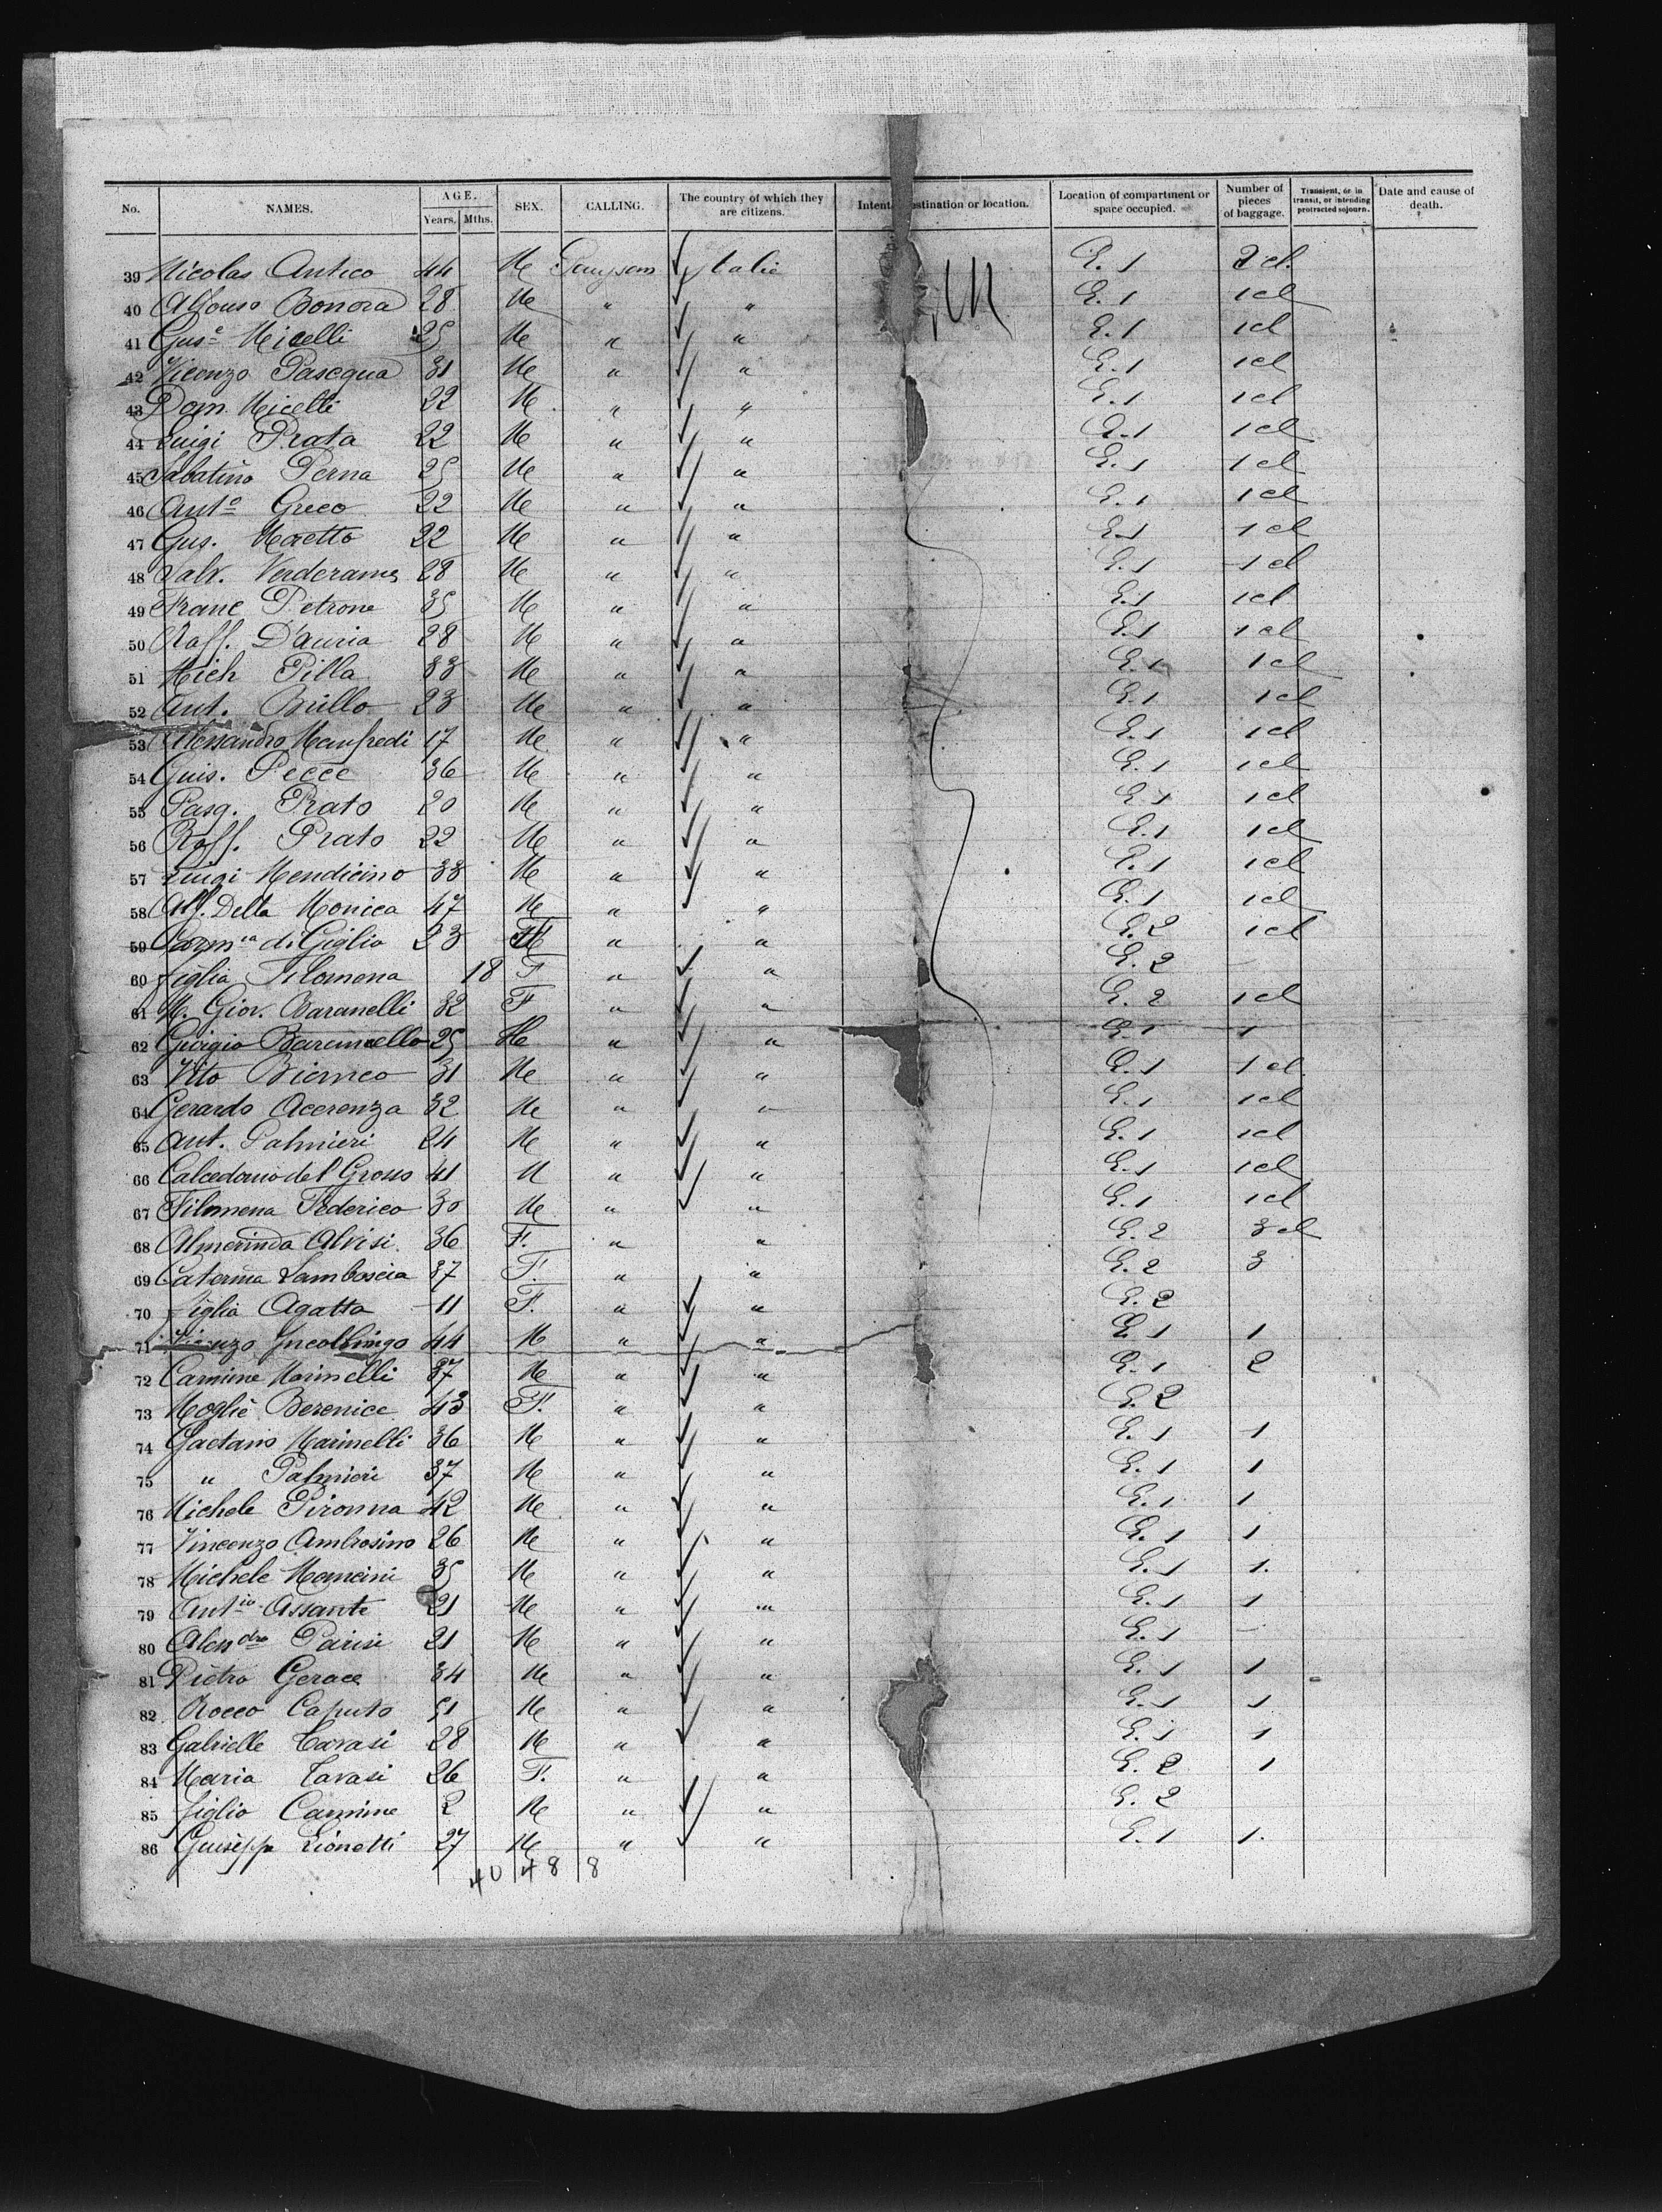 No. NAMES. AGE. Years. Mths. SEX. CALLING. The country of which they are citizens. Intent estination or location. Location of compartment or space occupied. Number of pieces of baggage. Transient, or in transit, or intending protracted sojourn. Date and cause of death.
39 Nicolas Antico 44 M Paysan Italie NY E. 1 2 cl.
40 Alfonso Bonora 28 M " " E. 1 1 cl
41 Gus.e Micelli 25 M " " E. 1 1 cl
42 Vicenzo Pasequa 31 M " " E. 1 1 cl
43 Dom. Micelli 22 M " " E. 1 1 cl
44 Luigi Prata 22 M " " E. 1 1 cl
45 Sabatino Perna 25 M " " E. 1 1 cl
46 Ant.o Greco 22 M " " E. 1 1 cl
47 Gus. Maretto 22 M " " E. 1 1 cl
48 Salv. Verderames 28 M " " E. 1 1 cl
49 Franc Petrone 35 M " " E. 1 1 cl
50 Raff. D'auria 28 M " " E. 1 1 cl
51 Mich Pilla 33 M " " E. 1 1 cl
52 Ant. Brillo 23 M " " E. 1 1 cl
53 Alessandro Manfredi 17 M " " E. 1 1 cl
54 Guis. Pecce 36 M " " E. 1 1 cl
55 Pasq. Prato 20 M " " E. 1 1 cl
56 Raff. Prato 22 M " " E. 1 1 cl
57 Luigi Mendicino 33 M " " E. 1 1 cl
58 Alf. Della Monica 47 M " " E. 1 1 cl
59 Carm.na di Giglio 23 F " " E. 2 1 cl
60 figlia Filomena 18 F " " E. 2 –
61 M. Giov. Baranelli 32 F " " E. 2 1 cl
62 Giorgio Barannello 25 M " " E. 1 1
63 Vito Bianco 31 M " " E. 1 1 cl
64 Gerardo Acerenza 32 M " " E. 1 1 cl
65 Ant. Palmieri 24 M " " E. 1 1 cl
66 Calcedonio del Grosso 41 M " " E. 1 1 cl
67 Filomena Federico 30 M " " E. 1 1 cl
68 Almerinda Alvisi. 36 F. " " E. 2 3 cl
69 Caterina Lamboscia 37 F. " " E. 2 3
70 figlia Agatta 11 F. " " E. 2
71 Vicenzo Incollingo 44 M " " E. 1 1
72 Carmine Marinelli 37 M " " E. 1 2
73 Moglie Berenice 43 F. " " E. 2
74 Gaetano Marinelli 36 M " " E. 1 1
75 " Palmieri 37 M " " E. 1 1
76 Michele Pironna 42 M " " E. 1 1
77 Vincenzo Ambrosino 26 M " " E. 1 1
78 Michele Mancini 35 M " " E. 1 1.
79 Ant.io Assante 21 M " " E. 1 1
80 Aless.dro Parisi 21 M " " E. 1 –
81 Pietro Gerace 34 M " " E. 1 1
82 Rocco Caputo 51 M " " E. 1 1
83 Gabrielle Tavasi 28 M " " E. 1 1
84 Maria Tavasi 26 F. " " E. 2 1
85 figlio Carmine 2 M " " E. 2
86 Guiseppe Lionetti 27 M " " E. 1 1.
40 48 8